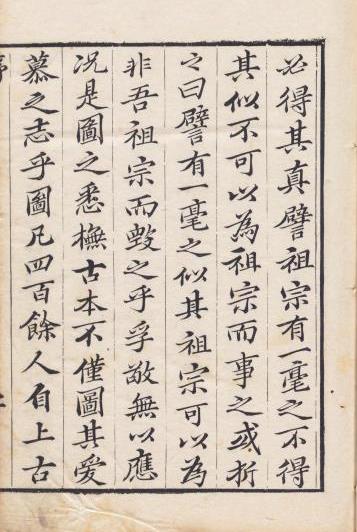 必得其真譬祖宗有一毫之不得
其似不可以為祖宗而事之或折
之曰譬有一毫之似其祖宗可以為
非吾祖宗而毀之乎孚敬無以應
况是圖之悉橅古本不僅圖其愛
慕之志乎圖凡四百餘人自上古